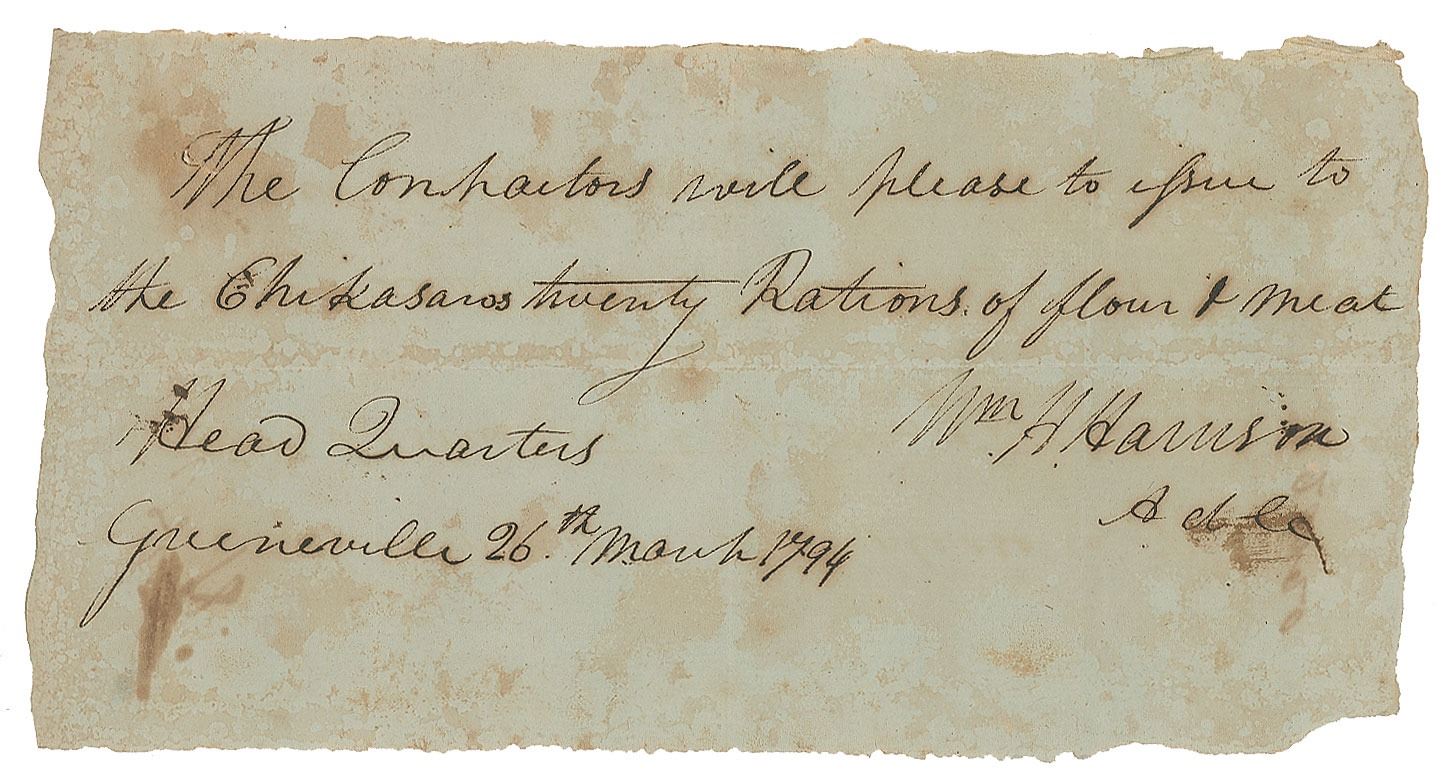 The Contractors will please to issue to
the Chikasaws twenty Rations of flour & meat
Head Quarters Wm H Harrison
Greeneville 26th March 1794 A d C